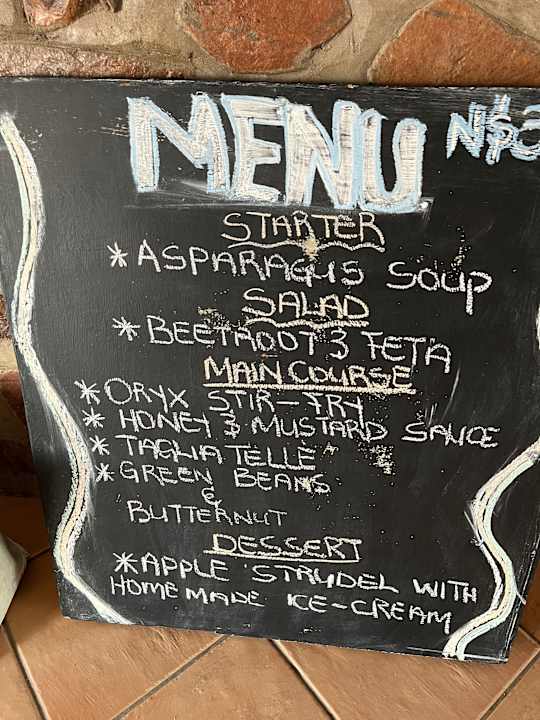 MENU N$3
STARTER
* ASPARAGUS SOUP
SALAD
* BEETROOT & FETA
MAIN COURSE
* ORYX STIR-FRY
* HONEY & MUSTARD SAUCE
* TAGLIATELLE
* GREEN BEANS
&
BUTTERNUT
DESSERT
* APPLE STRUDEL WITH
HOMEMADE ICE-CREAM